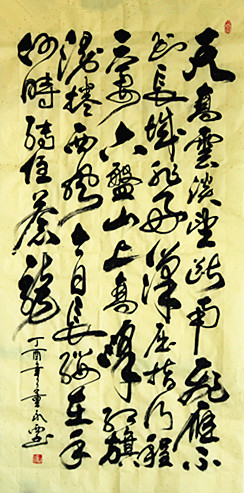 天高雲淡望断南飛雁不
到長城非好漢屈指行程
二萬六盤山上高峰紅旗
漫捲西風今日長纓在手
何時縛住蒼龍
丁酉年